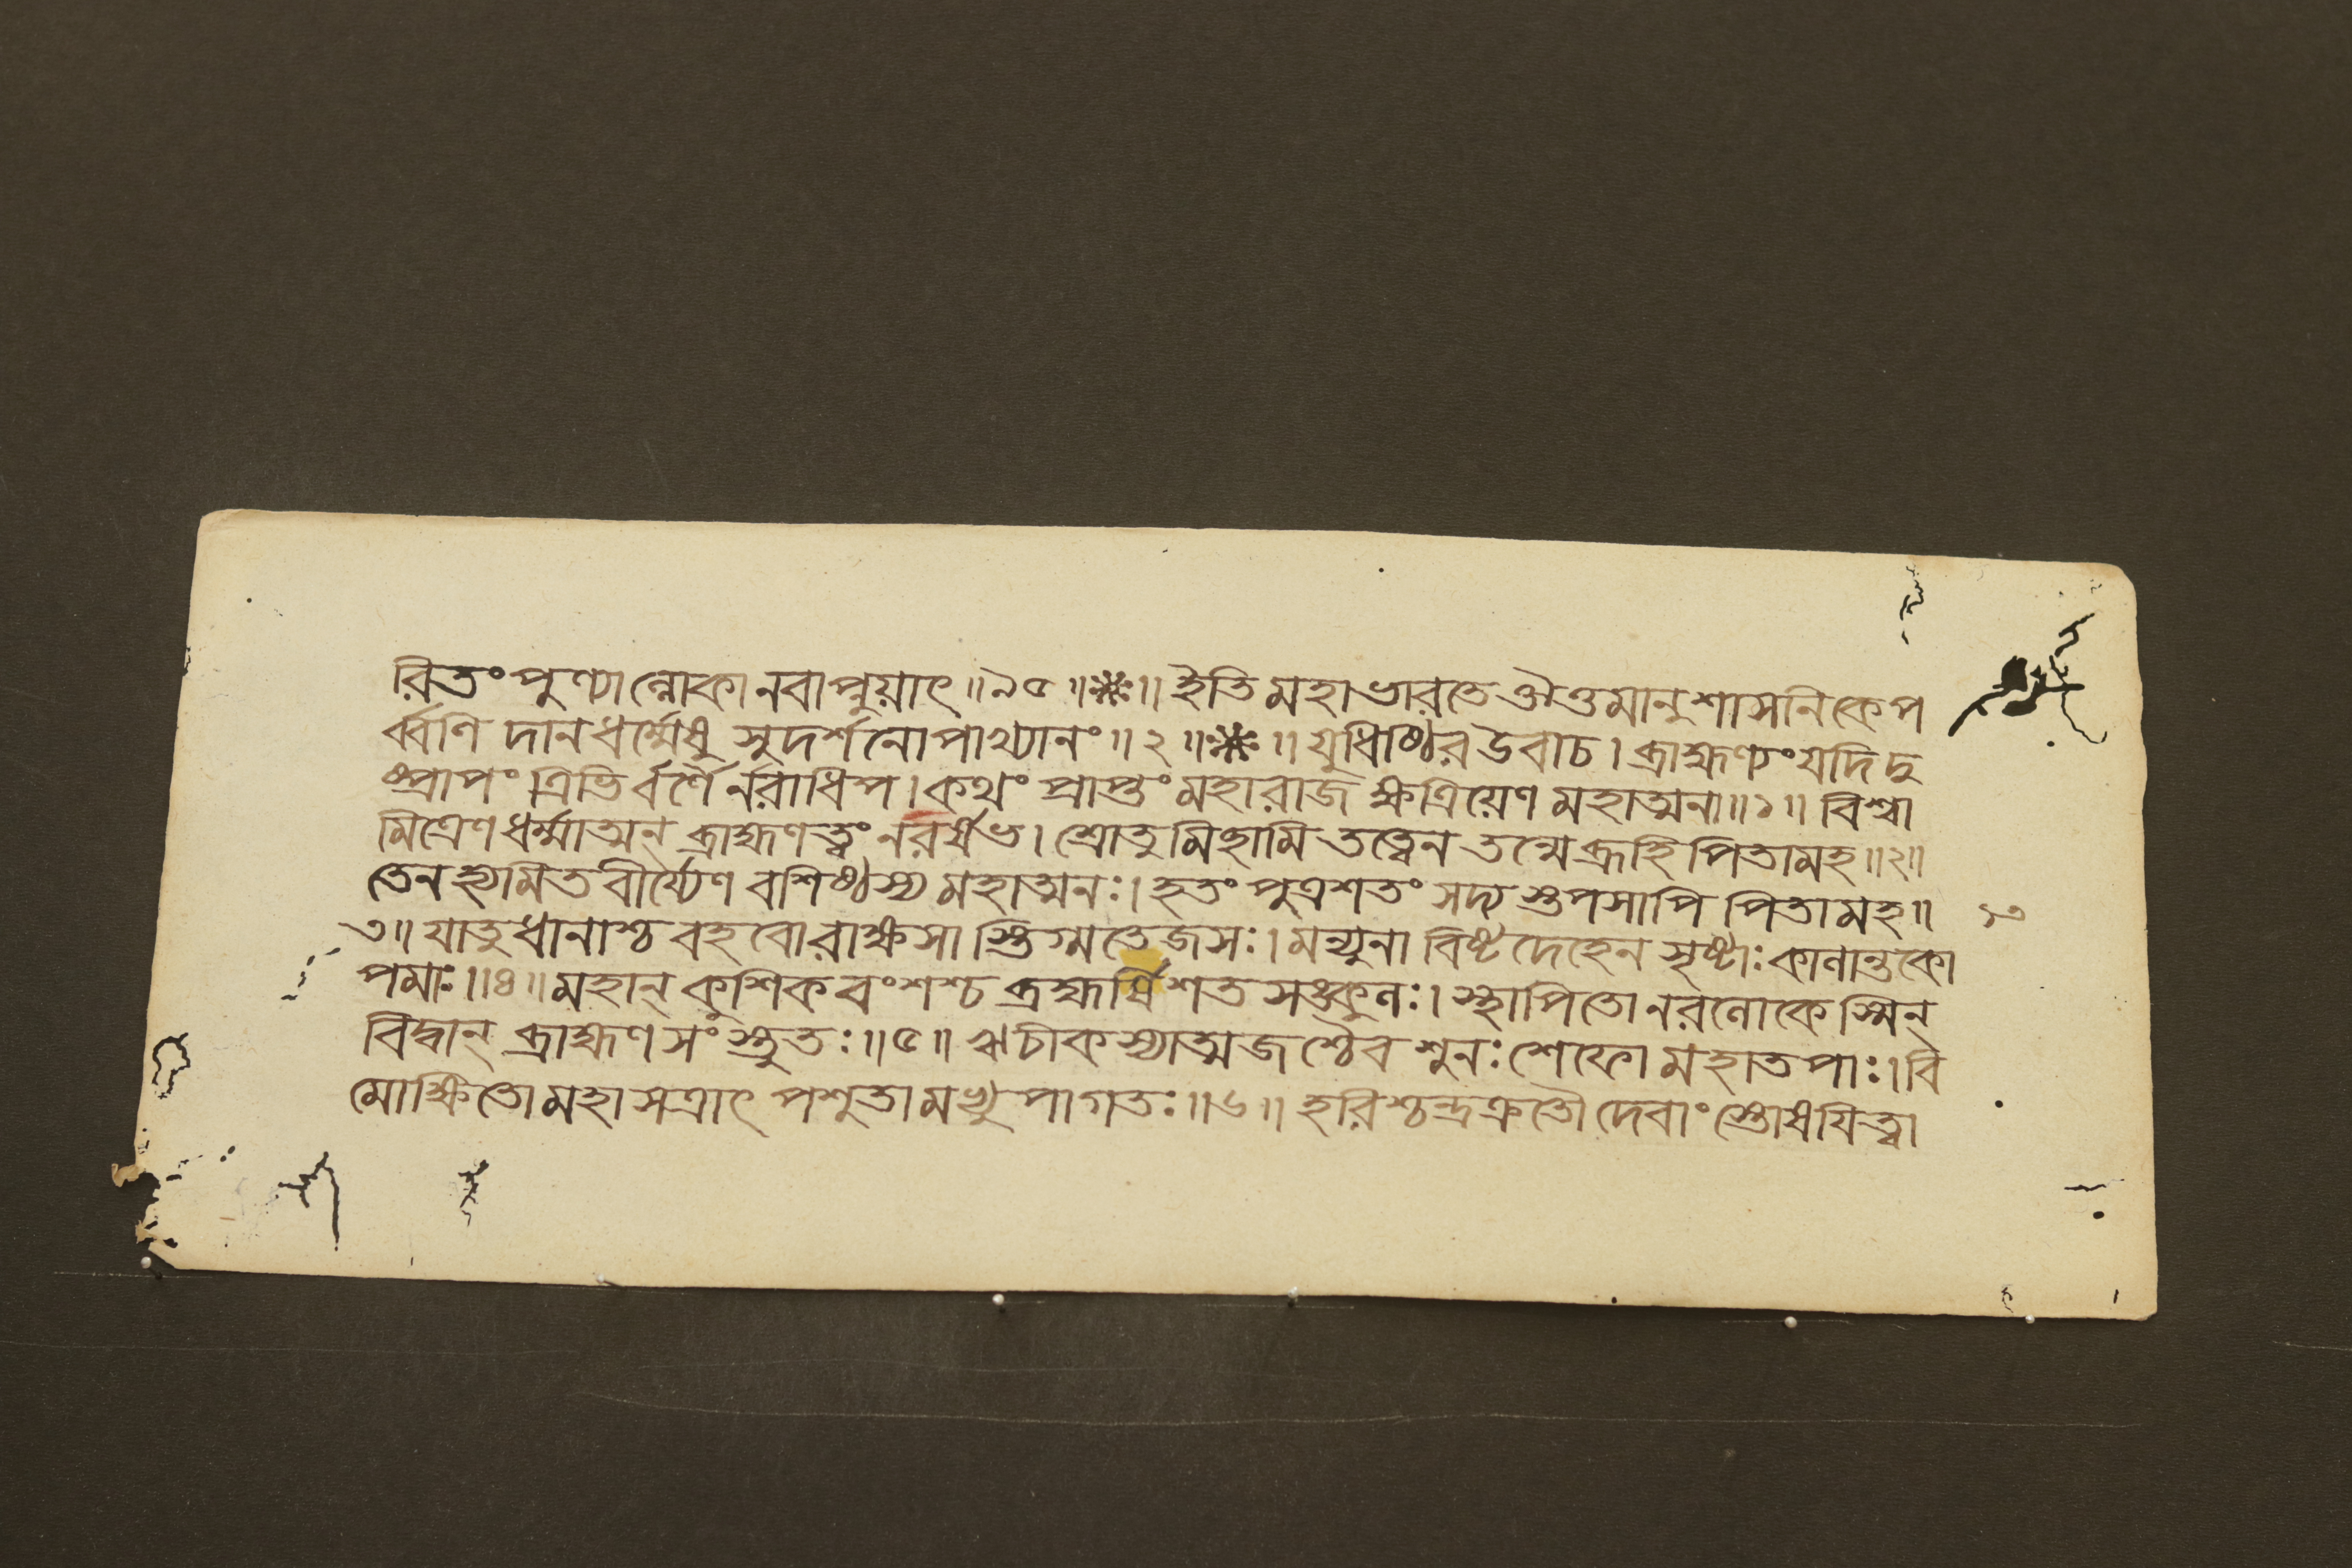 রিতং পুণ্যাল্লোকানবাপ্নুয়াৎ ॥৯৫॥❋॥ ইতি মহাভারতে ঔত্তমানুশাসনিকে প
র্ব্বণি দানধর্ম্মেষু সুদর্শনোপাখ্যানং ॥ ২ ॥❋॥ যুধিষ্ঠির উবাচ । ব্রাহ্মণ্যং যদি দু
ষ্প্রাপং ত্রিভির্বর্ণৈর্নরাধিপ । কথং প্রাপ্তং মহারাজ ক্ষত্রিয়েণ মহাত্মনা ॥১॥ বিশ্বা
মিত্রেণ ধর্ম্মাত্মন্ ব্রাহ্মণত্বং নরর্ষভ । শ্রোতুমিছামি তত্ত্বেন তন্মে ব্রূহি পিতামহ ॥২॥
তেন হ্যমিতবীর্য্যেণ বশিষ্ঠস্য মহাত্মনঃ । হতং পুত্রশতং সদ্যস্তপসাপি পিতামহ ॥ ১৩
৩॥ যাতুধানাশ্চ বহবো রাক্ষসাস্তিগ্মতেজসঃ । মন্যুনাবিষ্টদেহেন সৃষ্টাঃ কালান্তকো
পমাঃ ॥৪॥ মহান্ কুশিকবংশশ্চ ব্রহ্মর্ষিশতসঙ্কুলঃ । স্থাপিতো নরলোকেস্মিন্
বিদ্বান্ ব্রাহ্মণসংস্তুতঃ ॥৫॥ ঋচীকস্যাত্মজশ্চৈব শুনঃশেফো মহাতপাঃ । বি
মোক্ষিতো মহাসত্রাৎ পশুতামভ্যুপাগতঃ ॥৬॥ হরিশ্চন্দ্রক্রতৌ দেবাংস্তোষয়িত্বা